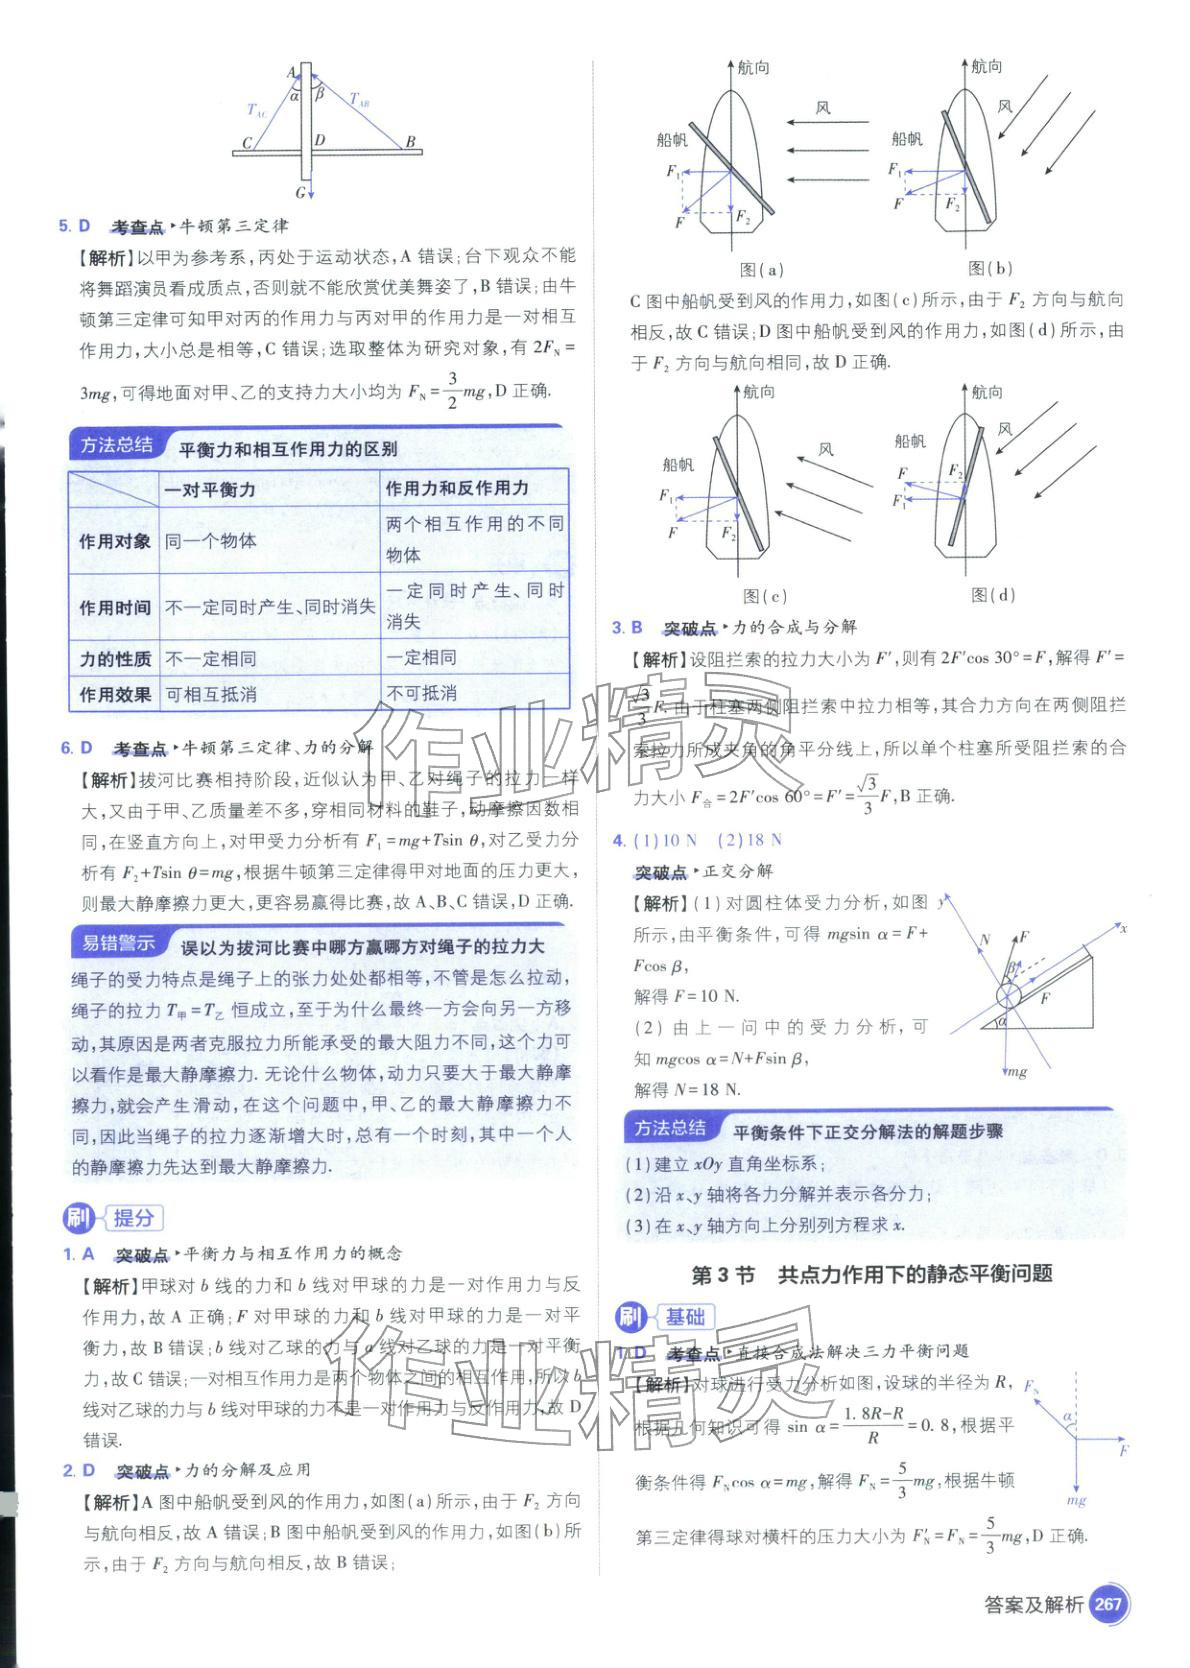 A
α β
T_AC T_AB
C D B
G
5. D 考查点▸牛顿第三定律
【解析】以甲为参考系,丙处于运动状态,A 错误;台下观众不能
将舞蹈演员看成质点,否则就不能欣赏优美舞姿了,B 错误;由牛
顿第三定律可知甲对丙的作用力与丙对甲的作用力是一对相互
作用力,大小总是相等,C 错误;选取整体为研究对象,有 2F_N =
3mg,可得地面对甲、乙的支持力大小均为 F_N = 3/2 mg,D 正确.
方法总结 平衡力和相互作用力的区别
一对平衡力 作用力和反作用力
作用对象 同一个物体 两个相互作用的不同物体
作用时间 不一定同时产生、同时消失 一定同时产生、同时消失
力的性质 不一定相同 一定相同
作用效果 可相互抵消 不可抵消
6. D 考查点▸牛顿第三定律、力的分解
【解析】拔河比赛相持阶段,近似认为甲、乙对绳子的拉力一样
大,又由于甲、乙质量差不多,穿相同材料的鞋子,动摩擦因数相
同,在竖直方向上,对甲受力分析有 F₁=mg+Tsin θ,对乙受力分
析有 F₂+Tsin θ=mg,根据牛顿第三定律得甲对地面的压力更大,
则最大静摩擦力更大,更容易赢得比赛,故 A、B、C 错误,D 正确.
易错警示 误以为拔河比赛中哪方赢哪方对绳子的拉力大
绳子的受力特点是绳子上的张力处处都相等,不管是怎么拉动,
绳子的拉力 T甲=T乙 恒成立,至于为什么最终一方会向另一方移
动,其原因是两者克服拉力所能承受的最大阻力不同,这个力可
以看作是最大静摩擦力. 无论什么物体,动力只要大于最大静摩
擦力,就会产生滑动,在这个问题中,甲、乙的最大静摩擦力不
同,因此当绳子的拉力逐渐增大时,总有一个时刻,其中一个人
的静摩擦力先达到最大静摩擦力.
刷 提分
1. A 突破点▸平衡力与相互作用力的概念
【解析】甲球对 b 线的力和 b 线对甲球的力是一对作用力与反
作用力,故 A 正确;F 对甲球的力和 b 线对甲球的力是一对平
衡力,故 B 错误;b 线对乙球的力与 a 线对乙球的力是一对平衡
力,故 C 错误;一对相互作用力是两个物体之间的相互作用,所以 b
线对乙球的力与 b 线对甲球的力不是一对作用力与反作用力,故 D
错误.
2. D 突破点▸力的分解及应用
【解析】A 图中船帆受到风的作用力,如图(a)所示,由于 F₂ 方向
与航向相反,故 A 错误;B 图中船帆受到风的作用力,如图(b)所
示,由于 F₂ 方向与航向相反,故 B 错误;
航向 航向
风 风
船帆 船帆
F₁ F₁
F F₂ F F₂
图(a) 图(b)
C 图中船帆受到风的作用力,如图(c)所示,由于 F₂ 方向与航向
相反,故 C 错误;D 图中船帆受到风的作用力,如图(d)所示,由
于 F₂ 方向与航向相同,故 D 正确.
航向 航向
风 风
船帆 船帆
F₁ F F₂
F F₂ F₁
图(c) 图(d)
3. B 突破点▸力的合成与分解
【解析】设阻拦索的拉力大小为 F′,则有 2F′cos 30°=F,解得 F′=
√3/3 F. 由于柱塞两侧阻拦索中拉力相等,其合力方向在两侧阻拦
索拉力所成夹角的角平分线上,所以单个柱塞所受阻拦索的合
力大小 F合=2F′cos 60°=F′=√3/3 F,B 正确.
4. (1)10 N (2)18 N
突破点▸正交分解
【解析】(1)对圆柱体受力分析,如图
所示,由平衡条件,可得 mgsin α=F+
Fcos β,
解得 F=10 N.
(2)由上一问中的受力分析,可
知 mgcos α=N+Fsin β,
解得 N=18 N.
y N F x
β F
α
mg
方法总结 平衡条件下正交分解法的解题步骤
(1)建立 xOy 直角坐标系;
(2)沿 x、y 轴将各力分解并表示各分力;
(3)在 x、y 轴方向上分别列方程求 x.
第 3 节 共点力作用下的静态平衡问题
刷 基础
1. D 考查点▸直接合成法解决三力平衡问题
【解析】对球进行受力分析如图,设球的半径为 R,
根据几何知识可得 sin α=(1.8R-R)/R=0.8,根据平
衡条件得 F_N cos α=mg,解得 F_N=5/3 mg,根据牛顿
第三定律得球对横杆的压力大小为 F′_N=F_N=5/3 mg,D 正确.
F_N
α
F
mg
答案及解析 267
作业精灵
作业精灵